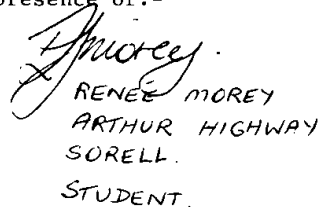 presence of:-
RENÉE MOREY
ARTHUR HIGHWAY
SORELL.
STUDENT.